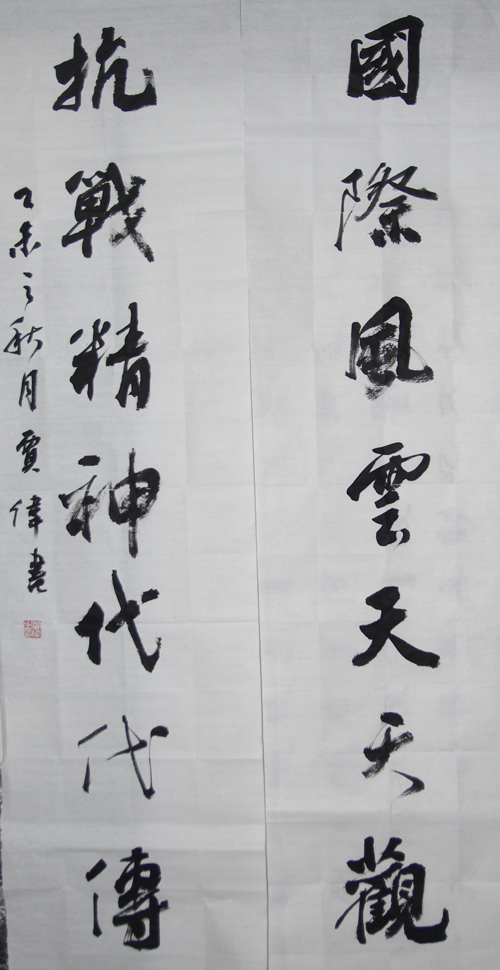 國際風雲天天觀
抗戰精神代代傳
乙未之秋月賈偉書